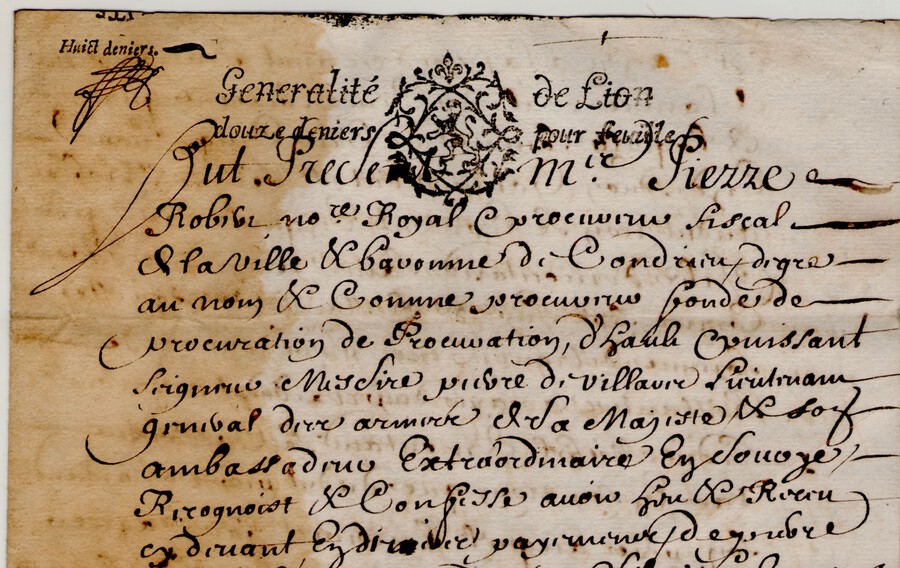 Huict deniers.
Generalité de Lion
douze deniers pour feuille
fut Present Mer Pierre
Robin nore Royal & procureur fiscal
de la ville & baronnie de Condrieu, de gre
au nom & Comme procureur fonde de
procuration de Procuration, d'hault & puissant
seigneur Messire pierre de villars Lieutenant
general des armees de sa Majeste & son
ambassadeur Extraordinaire En Savoye,
Recognoist & Confesse avoir heu & Receu
cy devant En payemenes, de pierre